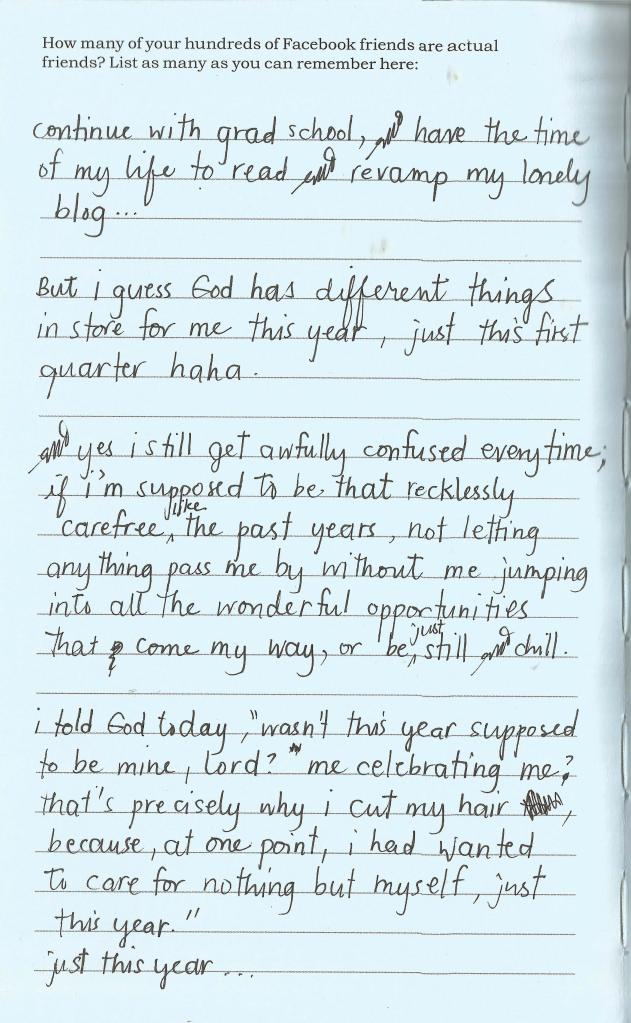 How many of your hundreds of Facebook friends are actual
friends? List as many as you can remember here:
continue with grad school, and have the time
of my life to read and revamp my lonely
blog...
But i guess God has different things
in store for me this year, just this first
quarter haha.
and yes i still get awfully confused everytime;
if i'm supposed to be that recklessly
carefree, like the past years, not letting
anything pass me by without me jumping
into all the wonderful opportunities
that come my way, or be just still and chill.
i told God today, "wasn't this year supposed
to be mine, Lord? "me celebrating me?
that's precisely why i cut my hair,
because, at one point, i had wanted
to care for nothing but myself, just
this year."
just this year...